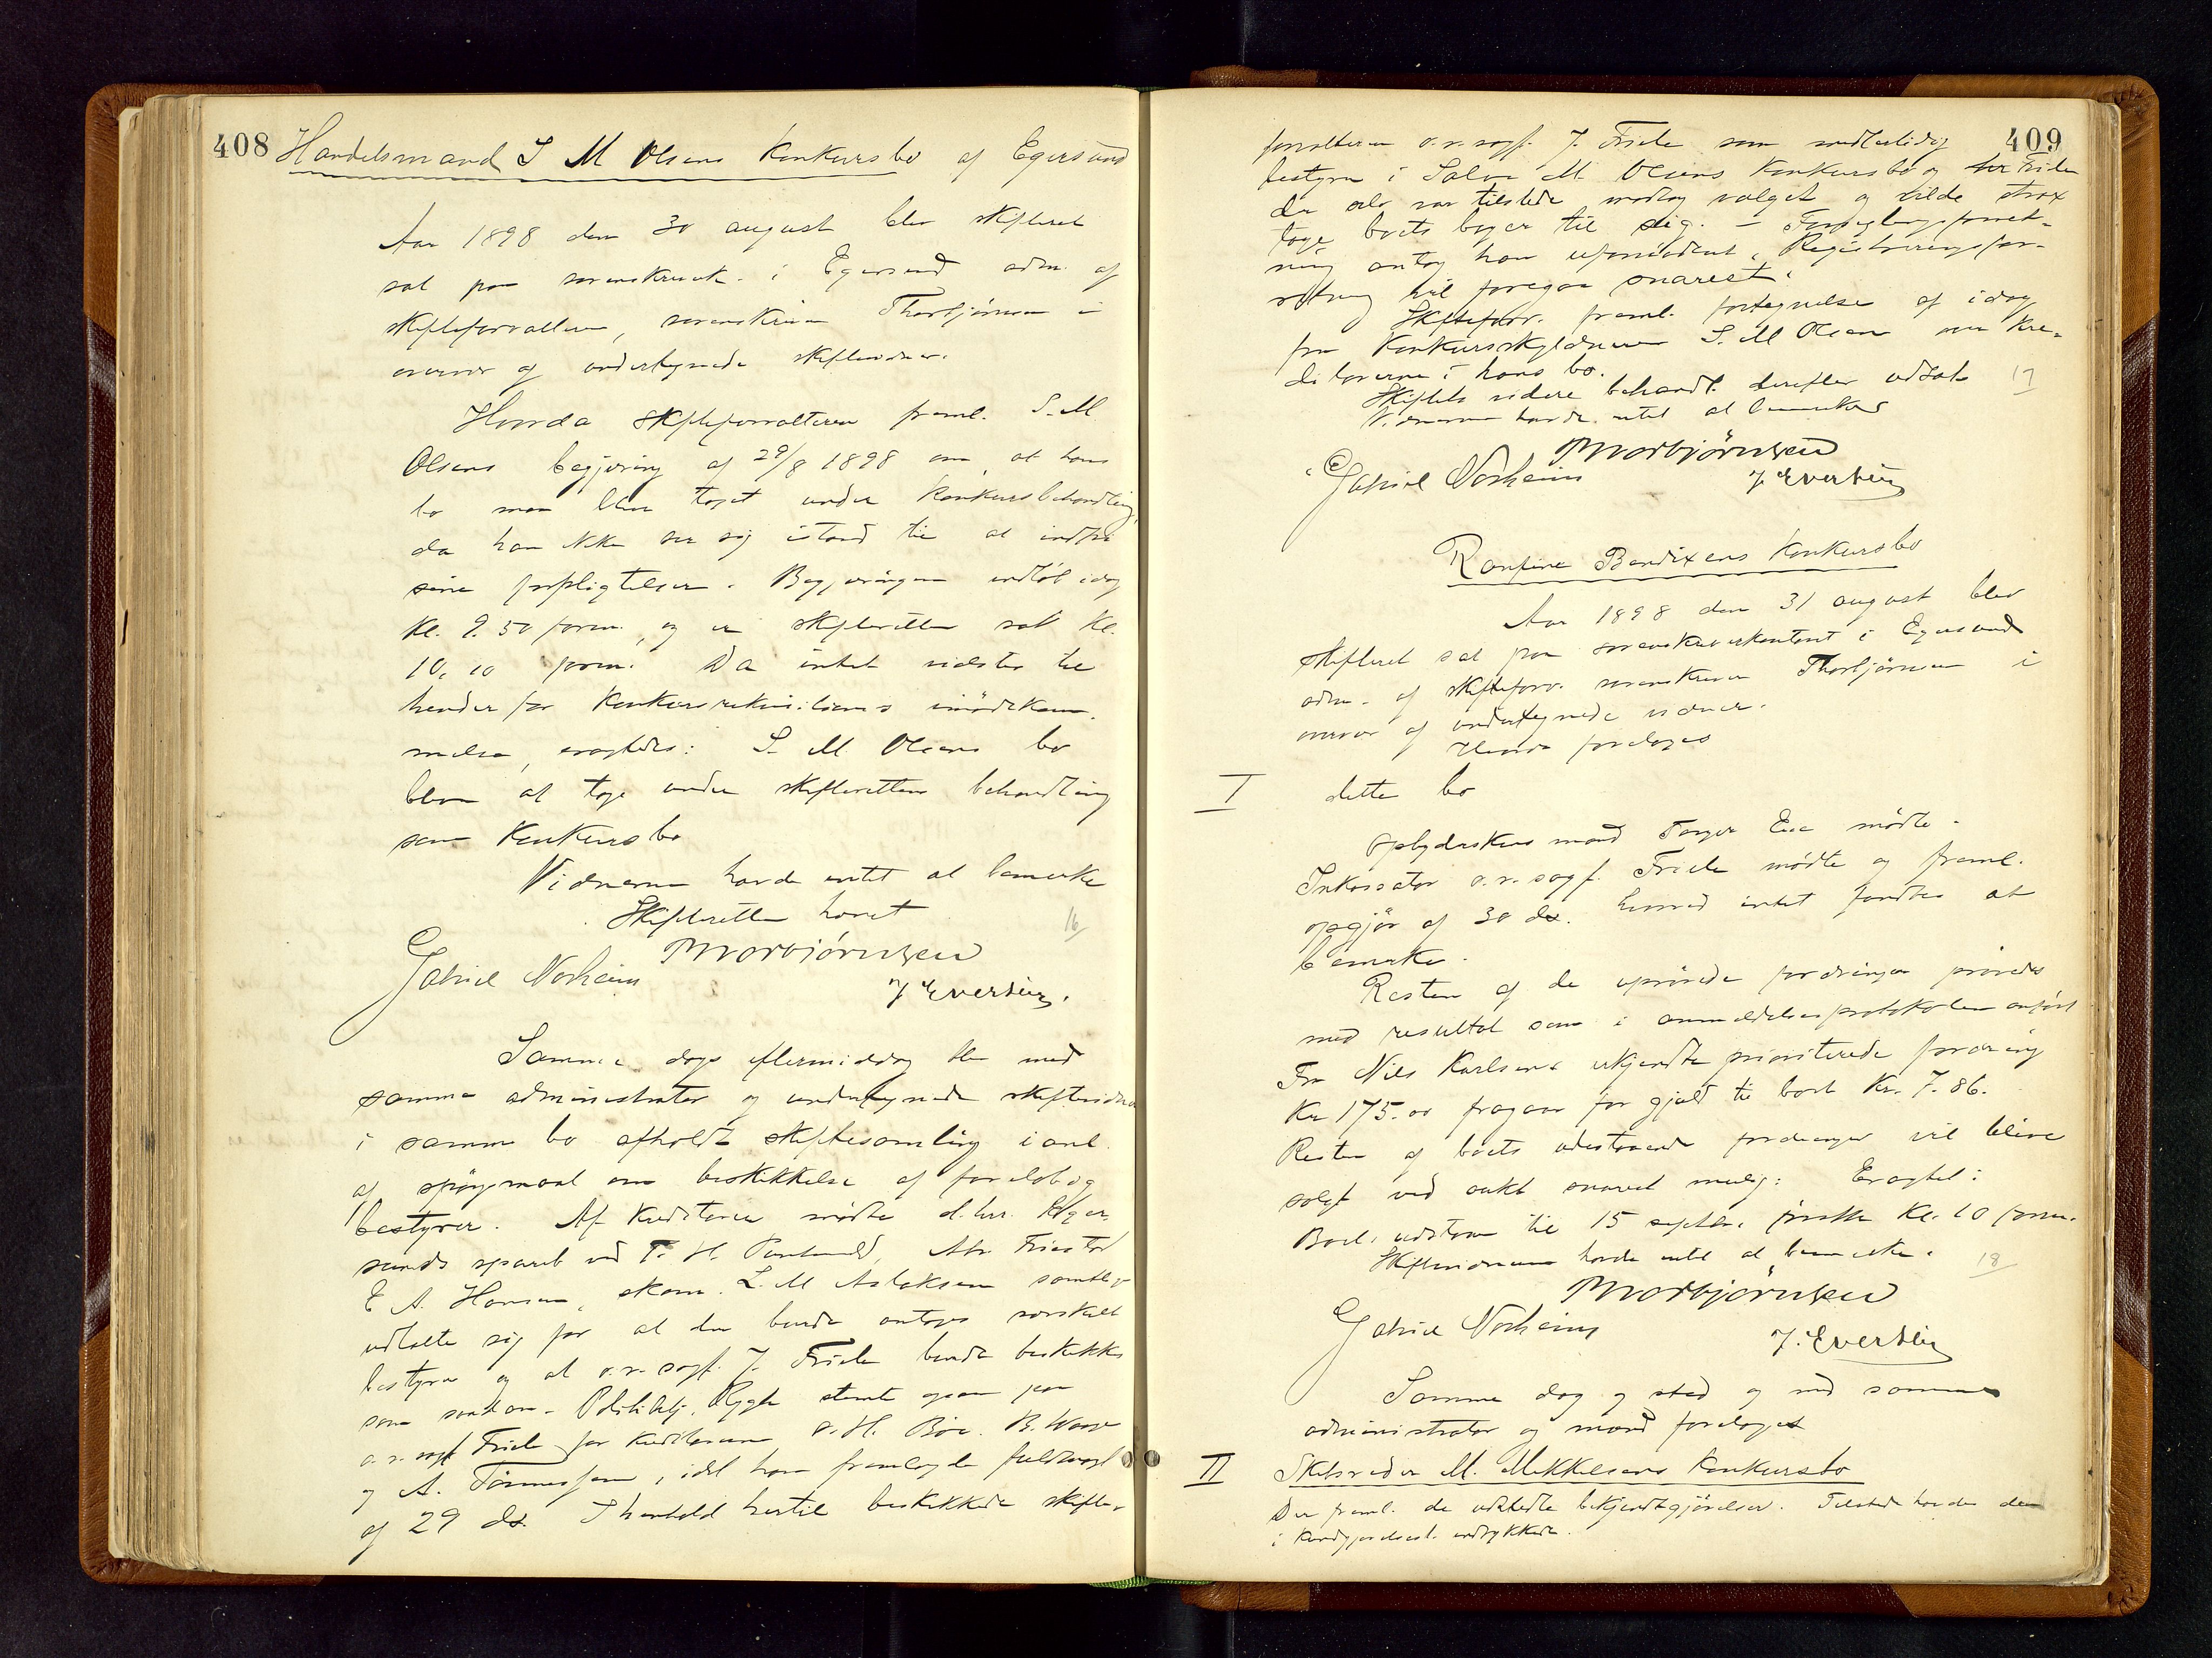 408
Handelsmand S M Olsens Konkursbo af Egersund
Aar 1898 den 30 august blev skifteret
sat paa sorenskriverk. i Egersund adm. af
skifteforvalteren, sorenskriver Thorbjørnsen i
overvær af undertegnede skiftevidner.
Hvorda skifteforvalteren freml. S. M
Olsens begjæring af 29/8 1898 om, at hans
bo maa blive taget under Konkursbehandling,
da han ikke ser sig istand til at indfri
sine forpligtelser. Begjæringen indløb idag
Kl. 9.50 form., og er skifteretten sat Kl.
10,10 form. Da intet vidstes til
hinder for Konkursrekvisitionens imødekom-
melse, eragtedes: S. M Olsens bo
bliver at tage under skifterettens behandling
som Konkursbo
Vidnerne havde intet at bemerke
Skifteretten hævet
16
Thorbjørnsen
Gabriel Norheim
J. Evertsen.
Samme dags eftermiddag blev med
samme administrator og undertegnede skiftevidner
i samme bo afholdt skiftesamling i anl.
af spørgsmaal om beskikkelse af foreløbig
bestyrer. Af Kreditorer mødte d.hrr. Eger-
sunds spareb ved T. H.
E A. Hansen, skom. L. M Aslaksen samtlige
udtalte sig for at der burde antages særskilt
bestyrer og at o.r.sagf. J. Friele burde beskikkes
som saadan. stemte ogsaa paa
o.r.sagf Friele for Kreditorerne O. H. Böe. B. Waage
og A. Tönnessen, idet han fremlagde fuldmagt
af 29 ds. I henhold hertil beskikkede skifte-
409
forvalteren o.r.sagf. J. Friele som midlertidig
bestyrer i Salve M. Olsens Konkursbo og hr Friele
der selv var tilstede modtog valget og vilde strax
tage boets bøger til sig. – Forseglingsforret-
ning antog han ufornødent. Registreringsfor-
retning vil foregaa snarest.
Skifteforv. freml. fortegnelse af idag
fra Konkursskyldneren S. M Olsen over Kre-
ditorerne i hans bo.
Skiftets videre behandl. derefter udsat
17
Vidnerne havde intet at bemerke
Thorbjørnsen
Gabriel Norheim
J. Evertsen
Ranfine Bendixens Konkursbo
Aar 1898 den 31 august blev
skifteret sat paa sorenskriverkontoret i Egersund
adm. af skifteforv. sorenskriver Thorbjørnsen i
overvær af undertegnede vidner.
Hvorda foretoges
I dette bo
Opbydelsesmand Torger Eie mødte.
Inkassator o.r.sagf. Friele mødte og freml.
opgjør af 30 ds. hvorved intet fandtes at
bemerke.
Resten af de uprøvede fordringer prøvedes
med resultat som i anmeldelsesprotokollen anført
Fra Nils Karlsens utkjendte prioriterede fordring
Kr 175.00 fragaar for gjæld til boet Kr. 7.86.
Resten af boets udestaaende fordringer vil blive
solgt ved aukt snarest mulig: Eragtet:
Boet udstaar til 15 septbr. førstk Kl. 10 form.
Skiftevidnerne havde intet at bemerke.
18
Thorbjørnsen
Gabriel Norheim
J. Evertsen
Samme dag og sted og med samme
administrator og mænd foretoges
II Skibsreder M. Mikkelsens Konkursbo
Der freml. de udstedte bekjendtgjørelser. Tilstede havde den
i Kundgjørelsest. indrykkede.